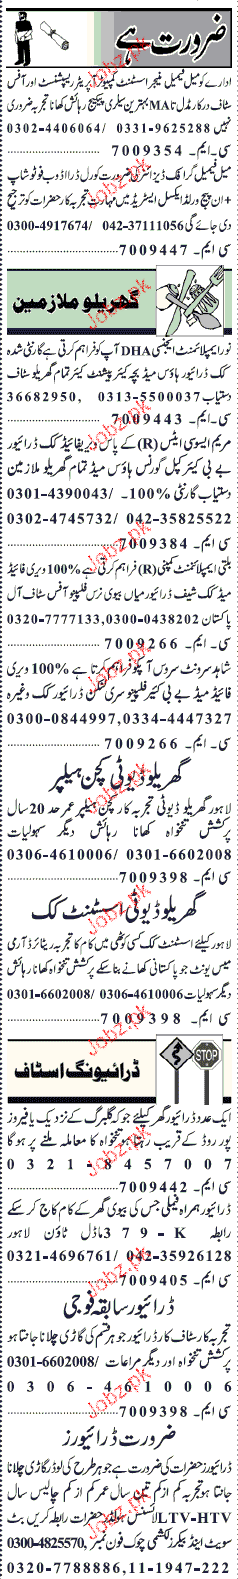 ضرورت ہے
ادارے کو میل فیمیل منیجر اسسٹنٹ کمپیوٹر آپریٹر ریسپشنسٹ اور آفس
سٹاف درکار مڈل تا MA بہترین سیلری پیکیج رہائش کھانا تجربہ ضروری
نہیں 0331-9625288 /0302-4406064
سی۔ ایم۔ 7009354
میل فیمیل گرافک ڈیزائنر کی ضرورت کورل ڈرا اڈوب فوٹو شاپ
+ ان پیج ورلڈ ایکسل السٹریٹر میں مہارت تجربہ کار حضرات کو ترجیح
دی جائے گی 042-37111056 /0300-4917674
سی ایم۔ 7009447
گھریلو ملازمین
نور ایمپلائمنٹ ایجنسی DHA آپ کو فراہم کرتی ہے گارنٹی شدہ
کک ڈرائیور ہاؤس میڈ بچہ کیئر پیشنٹ کیئر تمام گھریلو سٹاف
دستیاب 0313-5500037 ,36682950
سی۔ ایم۔ 7009443
مریم ایسوسی ایٹس (R) کے پاس ویریفائیڈ کک ڈرائیور
بے بی کیئر کپل گورنس ہاؤس میڈ تمام گھریلو ملازمین
دستیاب گارنٹی %100۔ /0301-4390043
042-35825522 /0302-4745732
سی ایم۔ 7009384
بلقی ایمپلائمنٹ کمپنی (R) فراہم کرتی ہے %100 ویری فائیڈ
میڈ کک شیف ڈرائیور میاں بیوی نرس فلپینو آفس سٹاف آل
پاکستان 0300-0438202 ,0320-7777133
سی۔ ایم۔ 7009266
شاہد سرونٹ سروس آپکو فراہم کرتا ہے %100 ویری
فائیڈ میڈ بے بی کیئر فلپینو سری لنکن ڈرائیور کک وغیرہ
0300-0844997,0334-4447327
سی۔ ایم۔ 7009266
گھریلو ڈیوٹی کچن ہیلپر
لاہور گھریلو ڈیوٹی تجربہ کار کچن ہیلپر عمر حد 20 سال
پرکشش تنخواہ کھانا رہائش دیگر سہولیات
0301-6602008 /0306-4610006
سی ایم۔ 7009398
گھریلو ڈیوٹی اسسٹنٹ کک
لاہور کیلئے اسسٹنٹ کک کسی کوٹھی میں کام کا تجربہ ریٹائرڈ آرمی
میس یونٹ جو پاکستانی کھانے بنا سکے پرکشش تنخواہ کھانا رہائش
دیگر سہولیات 0306-4610006 /0301-6602008
سی ایم۔ 7009398
STOP
ڈرائیونگ اسٹاف
ایک عدد ڈرائیور گھر کیلئے جو کہ گلبرگ کے نزدیک یا فیروز
پور روڈ کے قریب رہتا ہو تنخواہ کا معاملہ ملنے پر ہو گا
0321-8457007
سی ایم۔ 7009442
ڈرائیور ہمراہ فیملی جس کی بیوی گھر کے کام کاج کر سکے
رابطہ 379-K ماڈل ٹاؤن لاہور
042-35926128 /0321-4696761
سی ایم۔ 7009405
ڈرائیور سابقہ فوجی
تجربہ کار سٹاف کار ڈرائیور جو ہر قسم کی گاڑی چلانا جانتا ہو
پرکشش تنخواہ اور دیگر مراعات /0301-6602008
0306-4610006
سی ایم۔ 7009398
ضرورت ڈرائیورز
ڈرائیورز حضرات کی ضرورت ہے جو ہر طرح کی لوڈر گاڑی چلانا
جانتا ہو تجربہ کم از کم تین سال عمر کم از کم چالیس سال
LTV-HTV لائسنس ہولڈر حضرات رابطہ کریں بٹ
سویٹ اینڈ بیکرز لکشمی چوک فون نمبر 0300-4825570,
0320-7788886,11-1947-222
Jobz.pk